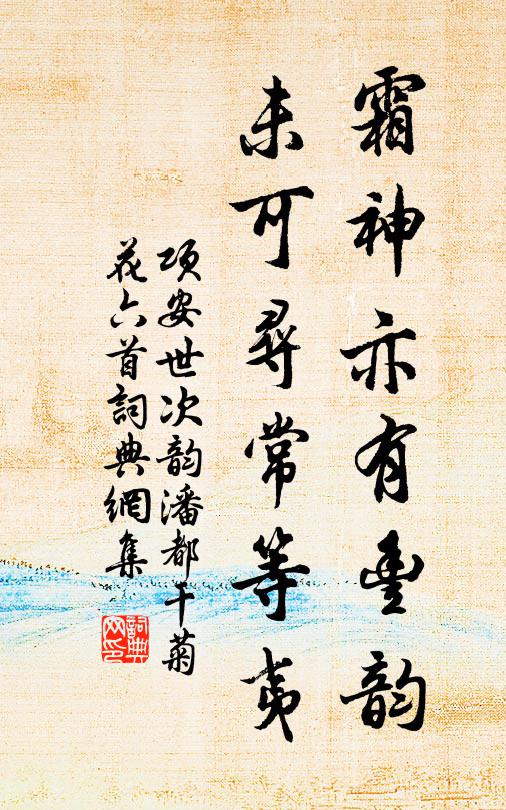 霜神亦有豊韵
未可尋常等夷
项安世次韵潘都干菊
花六首詞典網集
詞典
网印